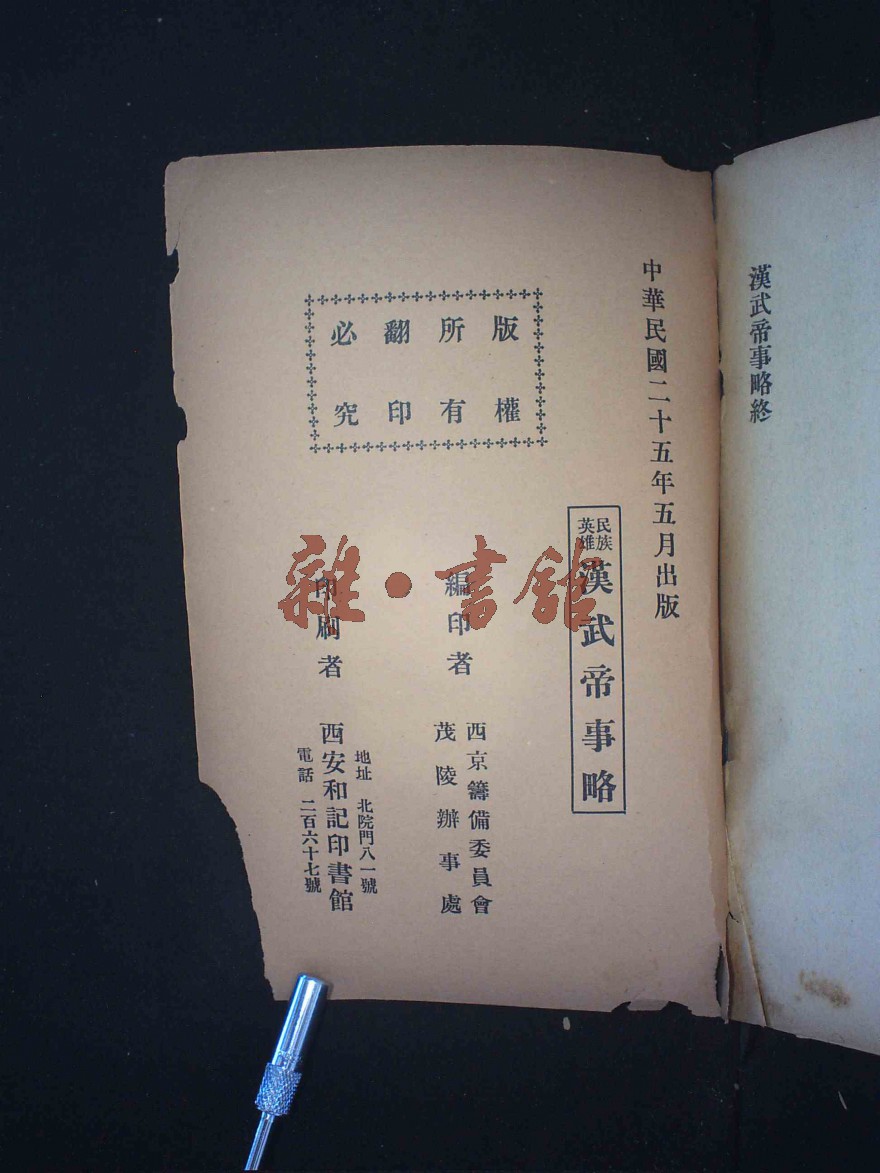 漢武帝事略終
中華民國二十五年五月出版
民族
英雄
漢武帝事略
版權
所有
翻印
必究
編印者
西京籌備委員會
茂陵辦事處
印刷者
地址 北院門八一號
西安和記印書館
電話 二百六十七號
雜·書館